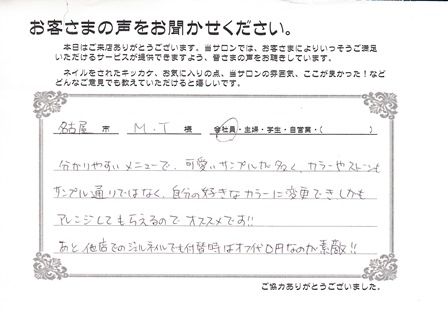 お客さまの声をお聞かせください。
本日はご来店ありがとうございます。当サロンでは、お客さまによりいっそうご満足
いただけるサービスが提供できますよう、皆さまの声をお聴きしています。
ネイルをされたキッカケ、お気に入りの点、当サロンの雰囲気、ここが良かった！など
どんなご意見でも教えていただけると嬉しいです。
名古屋 市 M.T 様 会社員・主婦・学生・自営業・( )
分かりやすいメニューで、可愛いサンプルが多く、カラーやストーンも
サンプル通りではなく、自分の好きなカラーに変更でき しかも
アレンジしてもらえるので オススメです!!
あと 他店でのジェルネイルでも付替時はオフ代0円なのが素敵!!
ご協力ありがとうございました。